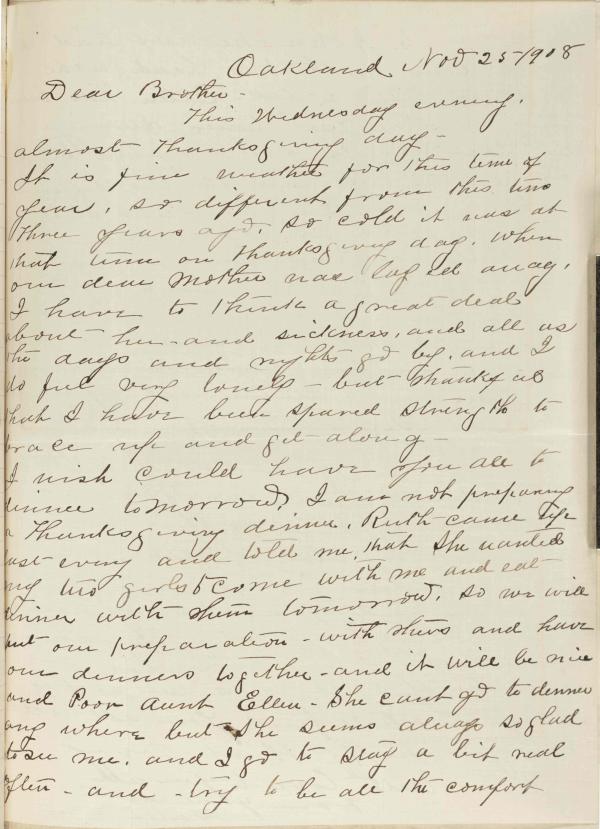 Oakland Nov 25 1908
Dear Brother -
This Wednesday evening.
almost Thanksgiving day -
It is fine weather for this time of
year, so different from this time
three years ago, so cold it was at
that time on Thanksgiving day. when
our dear Mother was laid away.
I have to think a great deal
about her - and sickness, and all as
the days and nights go by. and I
do feel very lonely - but thankful
that I have been spared strength to
brace up and get along -
I wish could have you all to
dinner tomorrow. I am not preparing
a Thanksgiving dinner. Ruth came up
last eveng and told me that she wanted
my two girls to come with me and eat
dinner with them tomorrow. so we will
put our preparation - with theirs and have
our dinners together - and it will be nice
and Poor Aunt Ellen - She cant go to dinner
any where but she seems always so glad
to see me. and I go to stay a bit real
often - and - try to be all the comfort